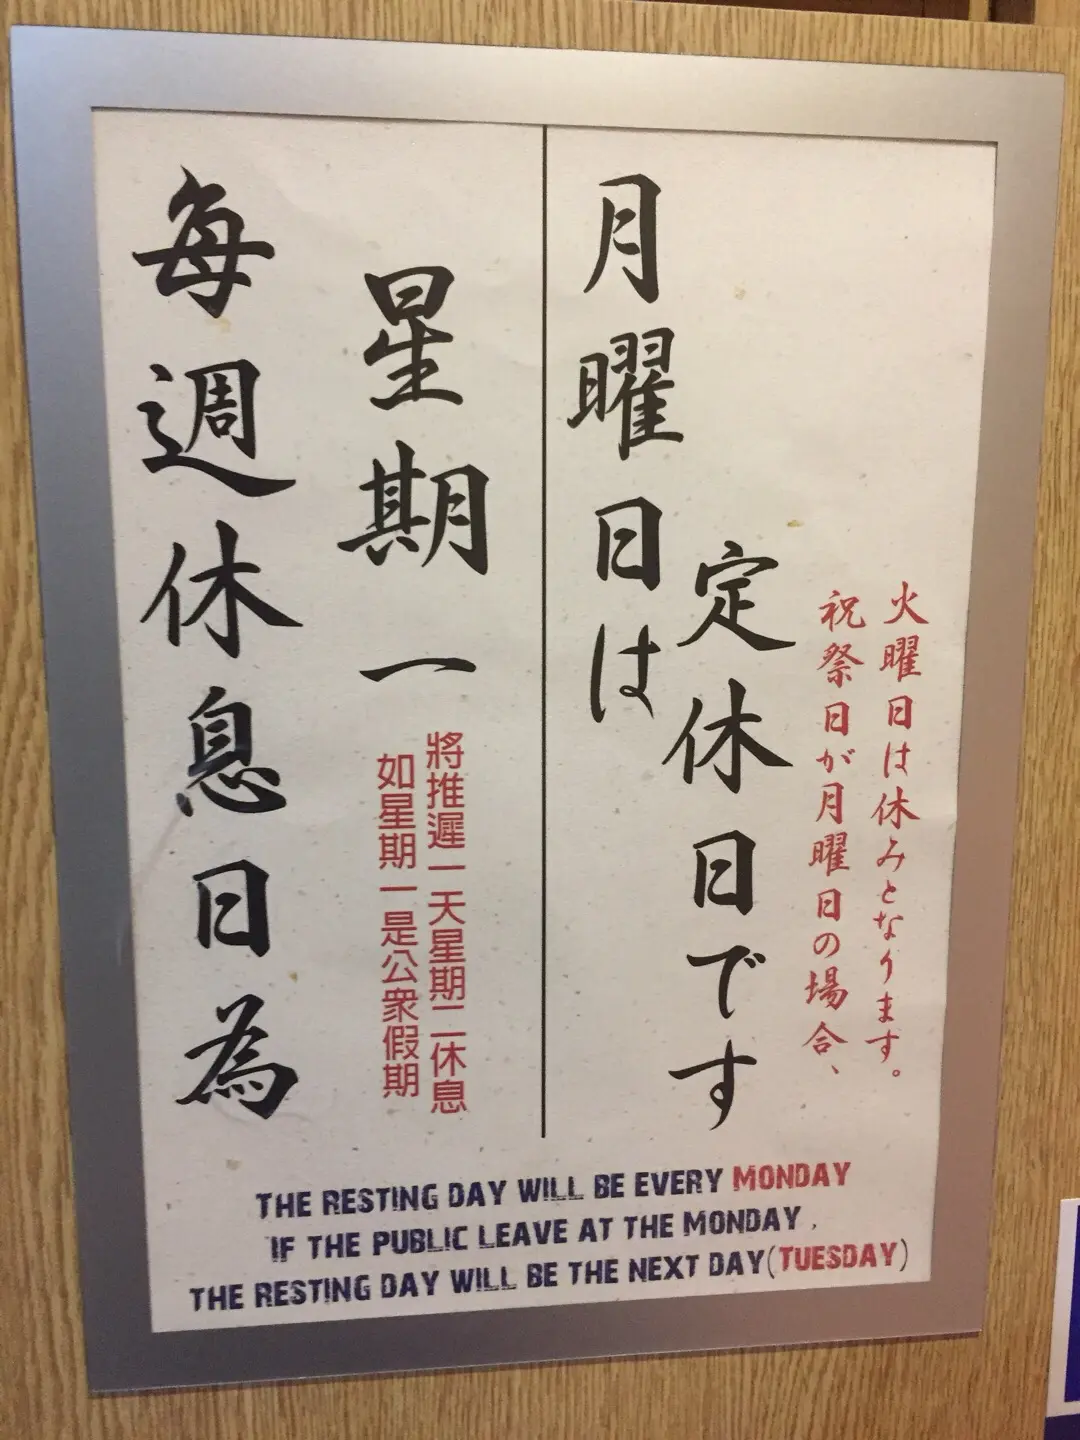 月曜日は
定休日です
祝祭日が月曜日の場合、
火曜日は休みとなります。
每週休息日為
星期一
如星期一是公眾假期
將推遲一天星期二休息
THE RESTING DAY WILL BE EVERY MONDAY
IF THE PUBLIC LEAVE AT THE MONDAY ,
THE RESTING DAY WILL BE THE NEXT DAY(TUESDAY)